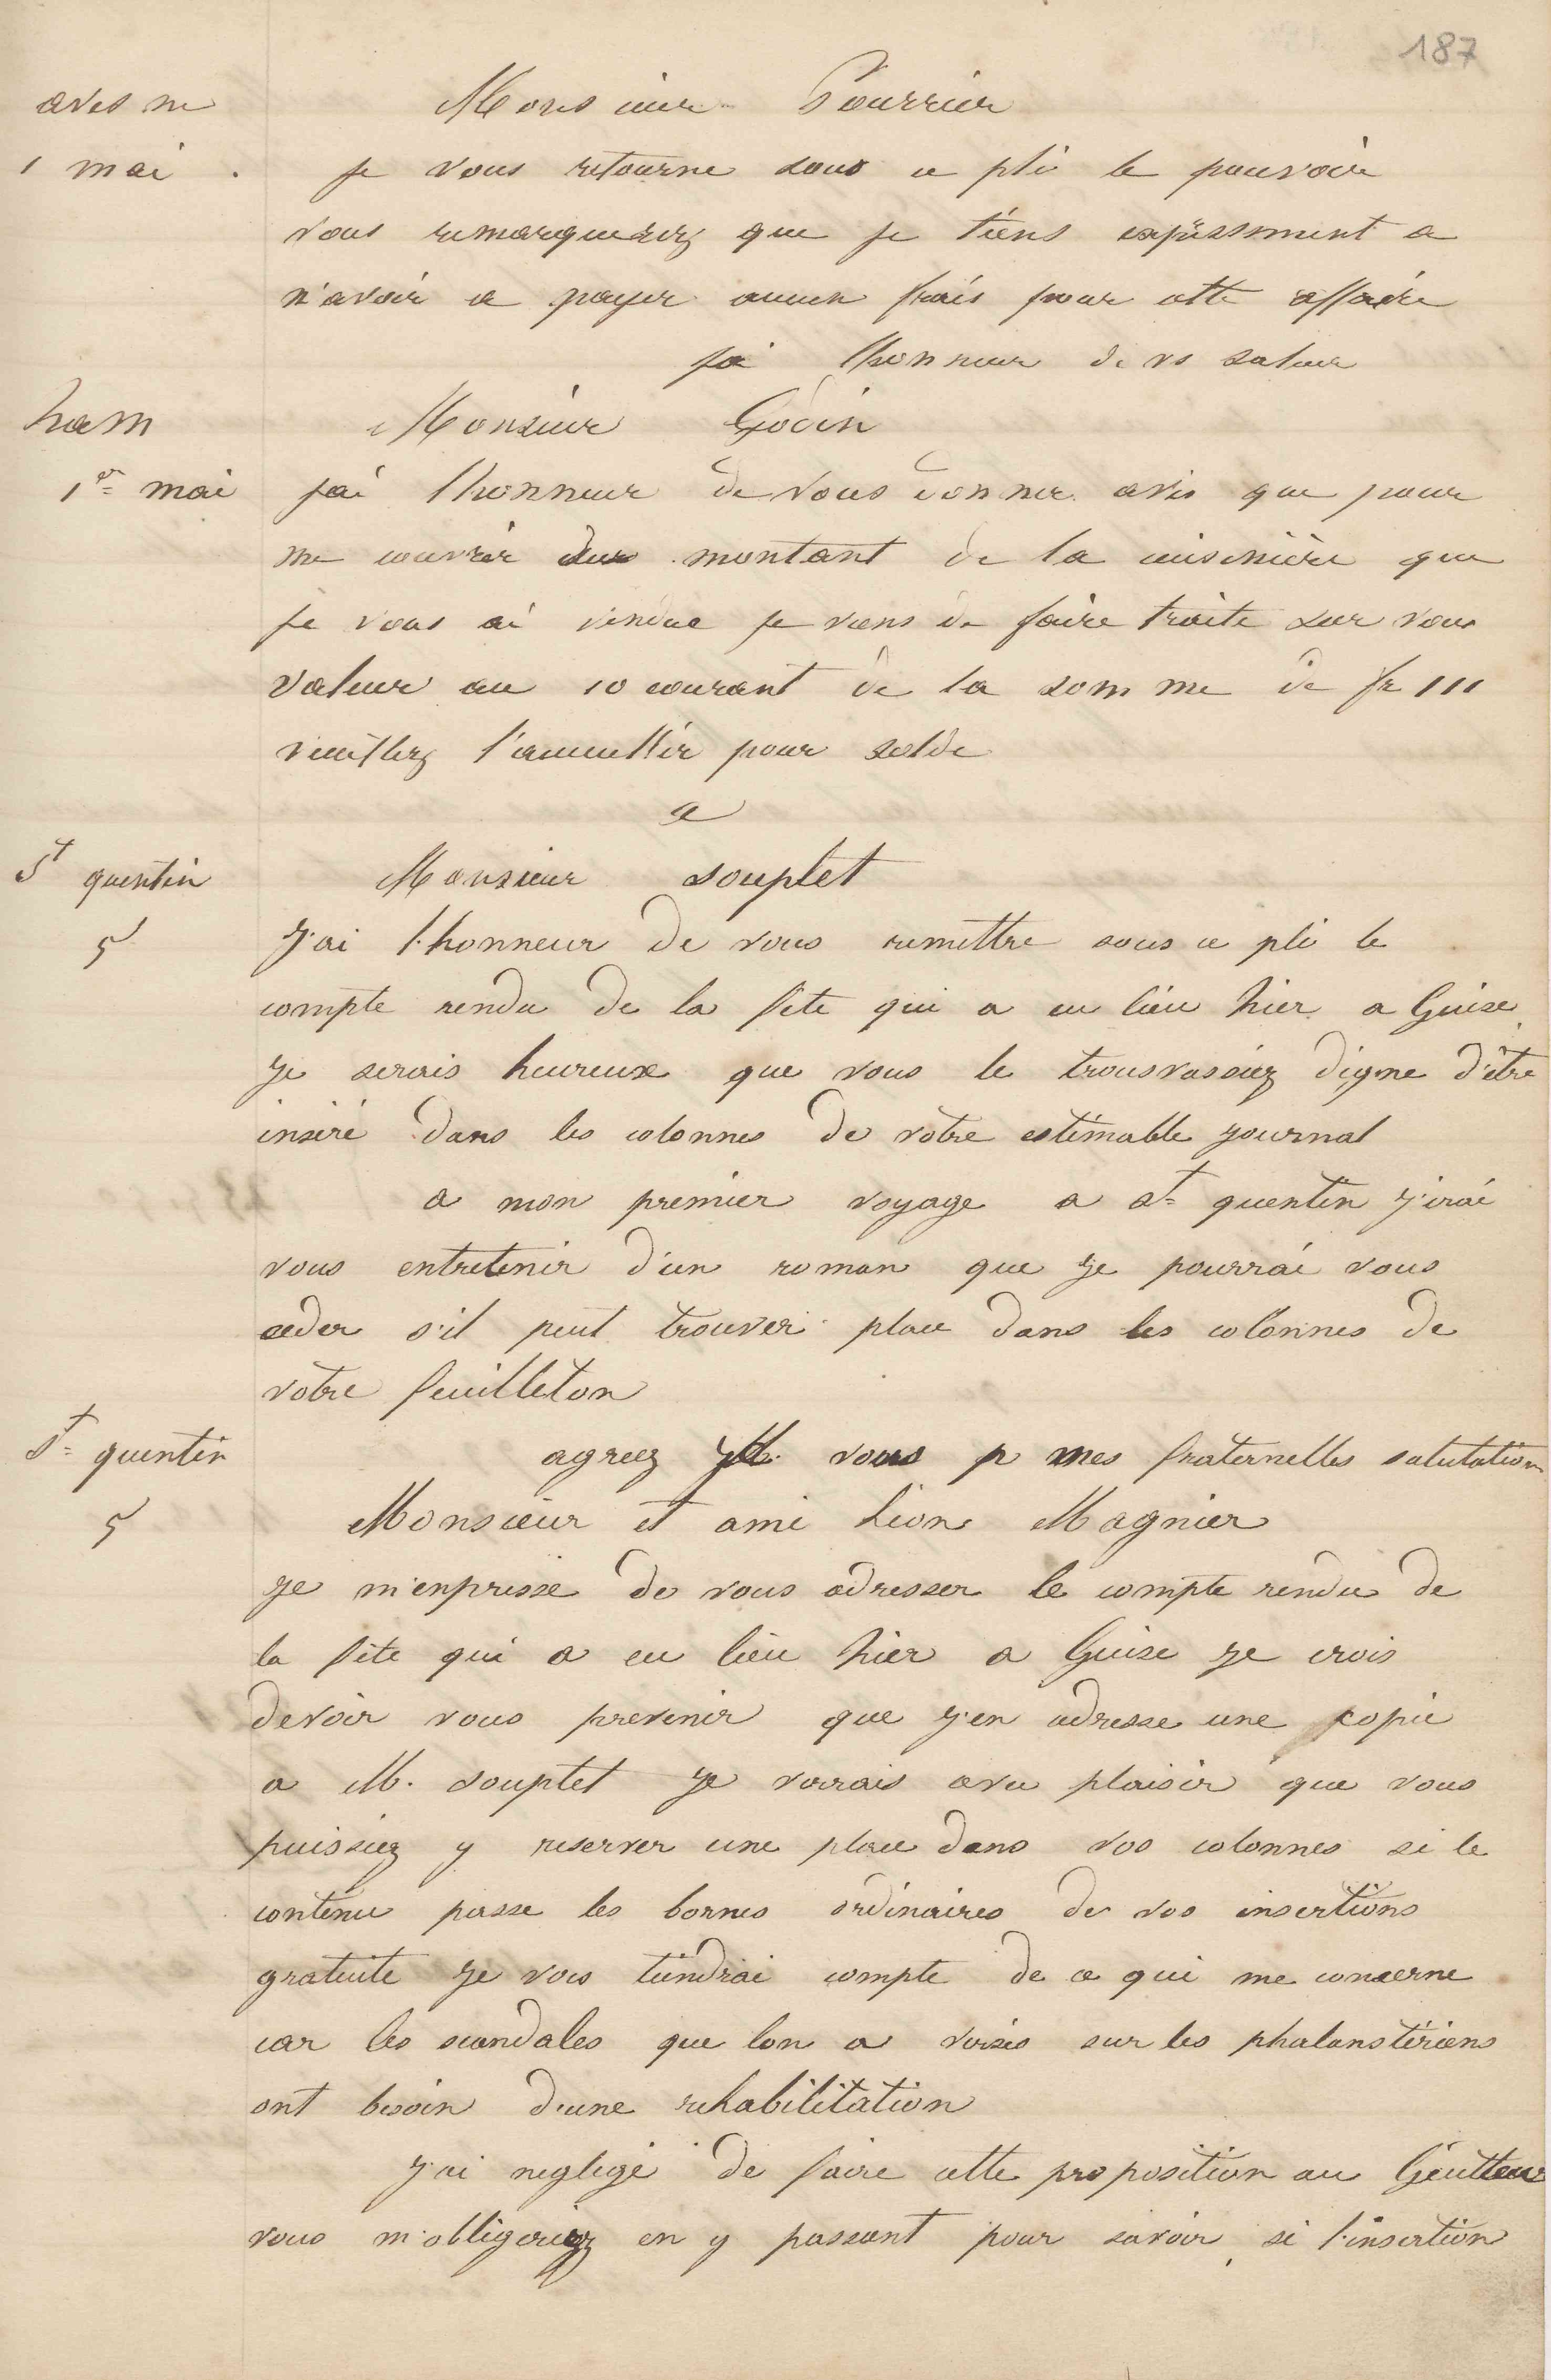 187
avesne Monsieur Pourrier
1 mai . je vous retourne sous ce pli le pouvoir
vous remarquerez que je tiens expressment a
n'avoir a payer aucun frais pour cette affaire
jai lhonneur de vs saluer
ham Monsieur Godin
1er mai jai lhonneur de vous donner avis que pour
me couvrir du montant de la cuisinière que
je vous ai vendue je viens de faire traite sur vous
valeur au 10 courant de la somme de fr 111
veuillez l'accueillir pour solde
a
St quentin Monsieur souplet
5 J'ai l'honneur de vous remettre sous ce pli le
compte rendu de la fete qui a eu lieu hier a Guise
je serais heureux que vous le trouvassiez digne d'être
inséré dans les colonnes de votre estimable journal
a mon premier voyage a st quentin j'irai
vous entretenir d'un roman que je pourrai vous
ceder s'il peut trouver place dans les colonnes de
votre feuilleton
St quentin agreez M. vous p mes fraternelles salutations
5 Monsieur et ami Léon Magnier
je m'enpresse de vous adresser le compte rendu de
la fête qui a eu lieu hier a Guise je crois
devoir vous prevenir que j'en adresse une copie
a M. souplet je verrais avec plaisir que vous
puissiez y reserver une place dans vos colonnes si le
contenu passe les bornes ordinaires de vos insertions
gratuite je vous tiendrai compte de ce qui me concerne
car les scandales que lon a versés sur les phalanstériens
ont besoin d'une rehabilitation
J'ai negligé de faire cette proposition au
vous m'obligeriez en y passant pour savoir si l'insertion